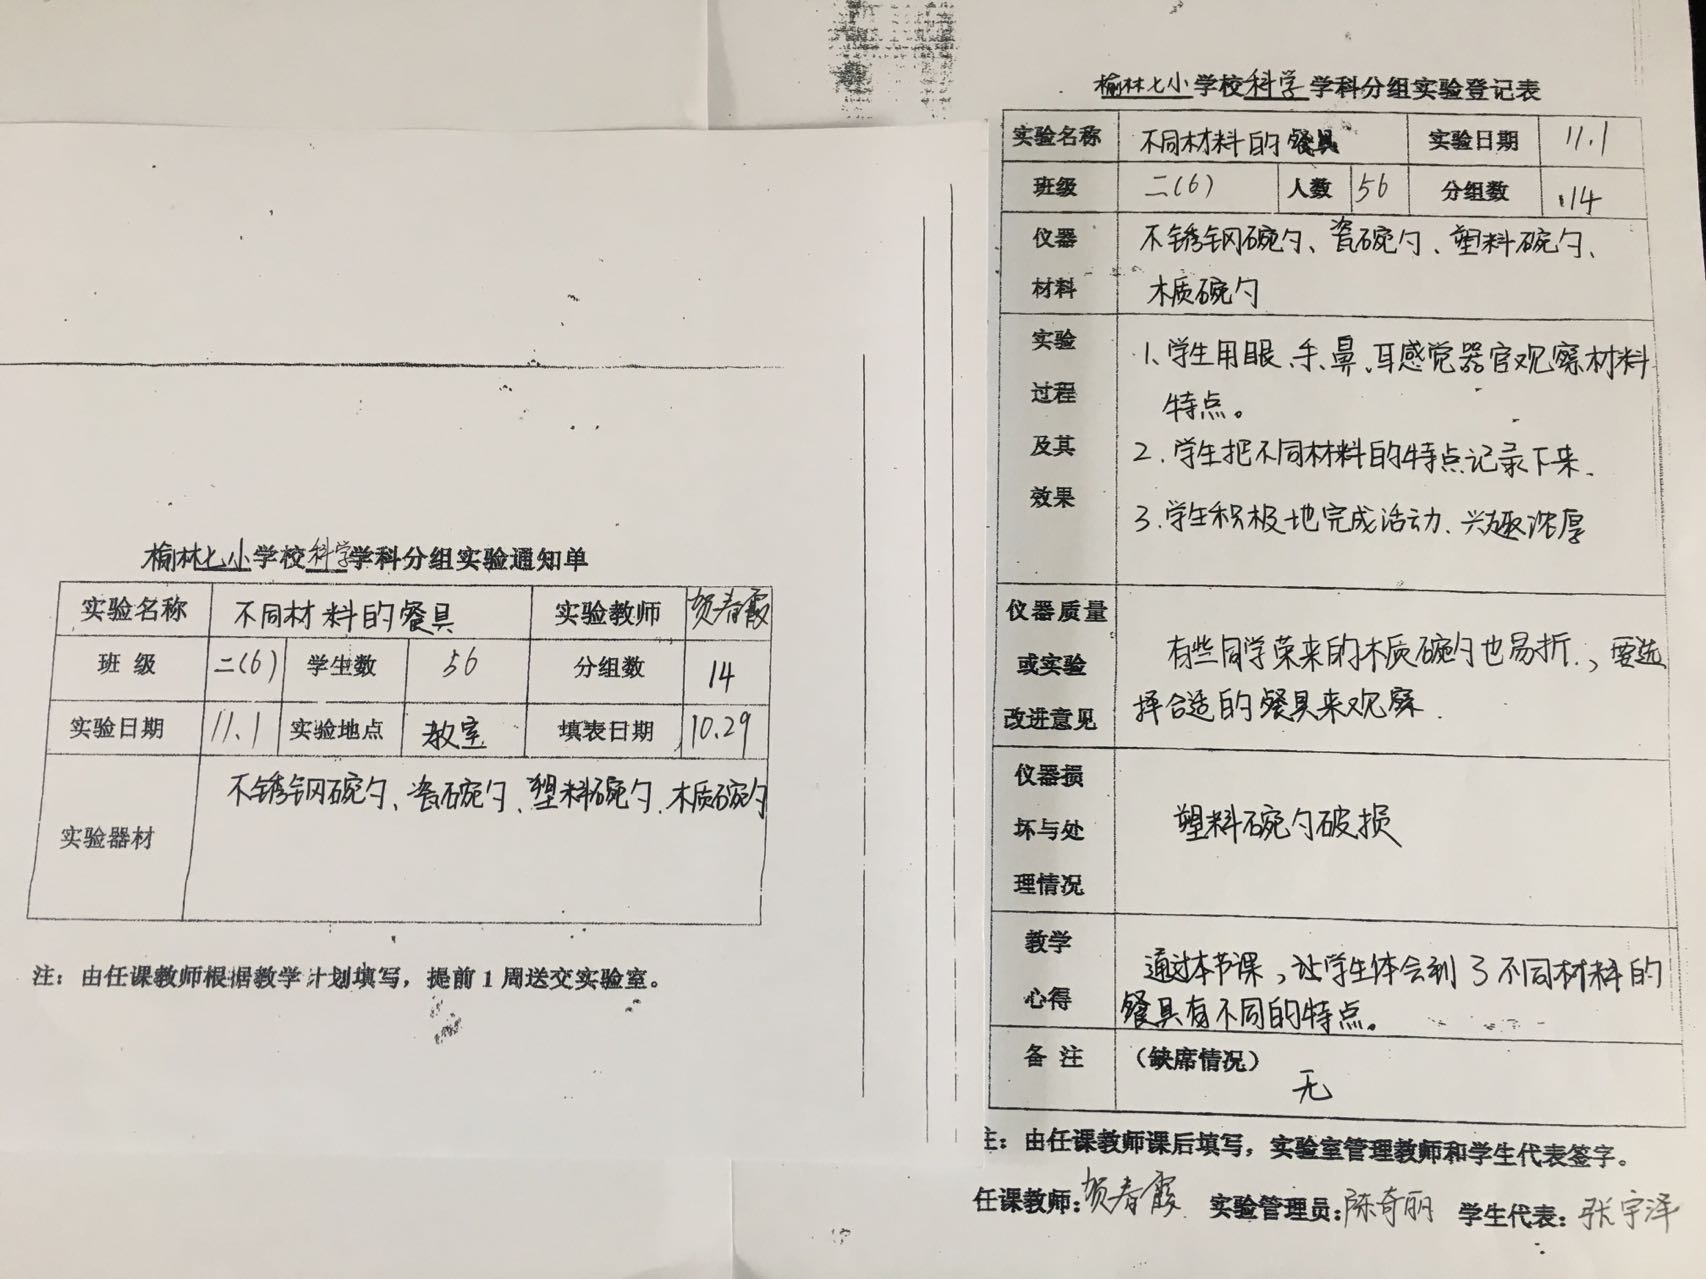 榆林七小学校科学学科分组实验通知单
实验名称 不同材料的餐具 实验教师 贺春霞
班 级 二(6) 学生数 56 分组数 14
实验日期 11.1 实验地点 教室 填表日期 10.29
实验器材 不锈钢碗勺、瓷碗勺、塑料碗勺、木质碗勺
注：由任课教师根据教学计划填写，提前1周送交实验室。
榆林七小学校科学学科分组实验登记表
实验名称 不同材料的餐具 实验日期 11.1
班级 二(6) 人数 56 分组数 14
仪器 不锈钢碗勺、瓷碗勺、塑料碗勺、
材料 木质碗勺
实验
过程
及其
效果
1、学生用眼、手、鼻、耳感觉器官观察材料
特点。
2.学生把不同材料的特点记录下来.
3.学生积极地完成活动、兴趣浓厚
仪器质量
或实验
改进意见
有些同学带来的木质碗勺也易折，要选
择合适的餐具来观察.
仪器损
坏与处
理情况
塑料碗勺破损
教学
心得
通过本节课，让学生体会到了不同材料的
餐具有不同的特点。
备 注 （缺席情况）
无
注：由任课教师课后填写，实验室管理教师和学生代表签字。
任课教师：贺春霞 实验管理员：陈奇丽 学生代表：张宇泽